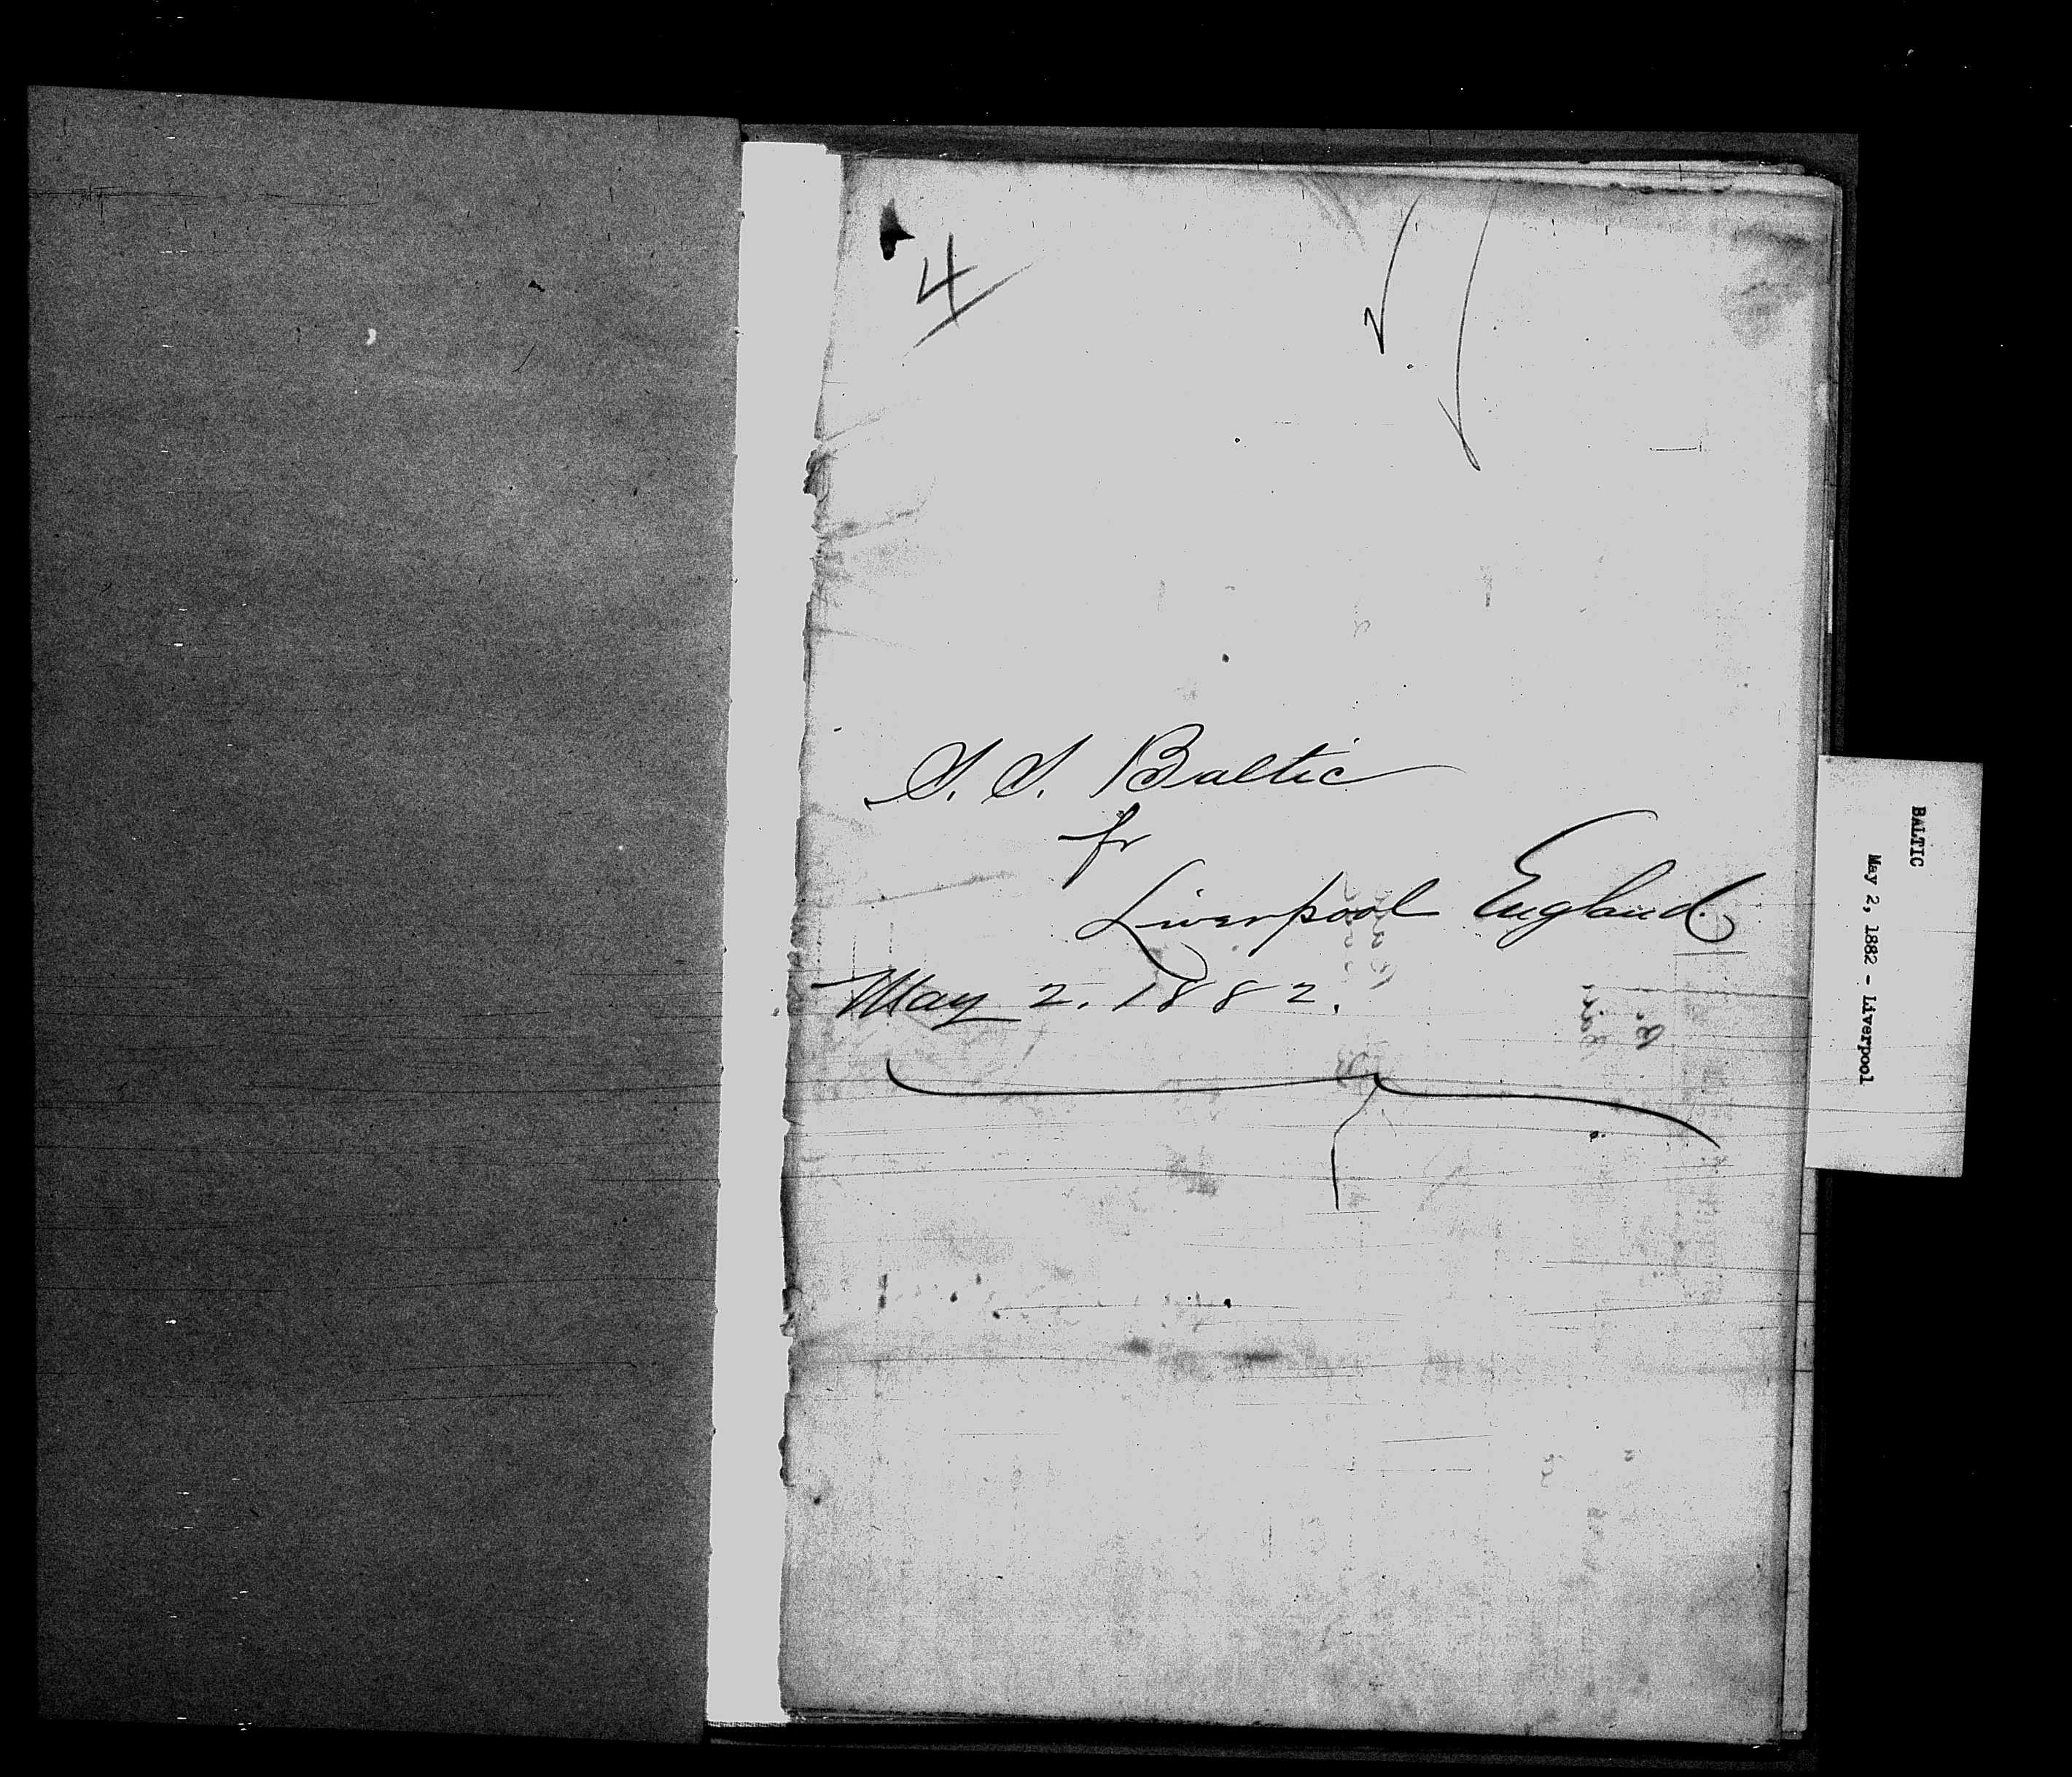 4
S. S. Baltic
fr
Liverpool England.
May 2. 1882.
BALTIC
May 2, 1882 - Liverpool